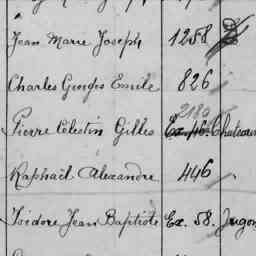 Jean Marie Joseph 1258
Charles Georges Emile 826
2180
Pierre Célestin Gilles Ex. 46. Chateau
Raphaël Alexandre 446
Isidore Jean Baptiste Ex. 58. Jugon